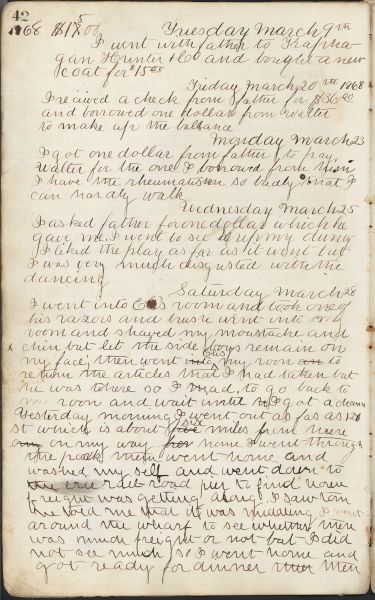 42
1868 $15.00 Tuesday March 9th
I went with father to Grapha-
gan Hunter & Co and bought a new
coat for $15.00
Friday March 20th 1868
I recived a check from father for $36.00
and borrowed one dollar from walter
to make up the ballance
Monday March 23
I got one dollar from father to pay
Walter for the one I borrowed from him
I have the rheumatism so badly that I
can hardly walk
Wednesday March 25
I asked father for one dollar which he
gave me. I went to see Humpty dumty
I liked the play as far as it went but
I was very much disgusted with the
dancing
Saturday March 28
I went into room and took one of
his razors and brush went into my
room and shaved my moustache and
chin but let the side boys remain on
my face, then went into his room to
return the articles that I had taken but
he was there so I had to go back to
my room and wait until I got a chance
Yesterday morning I went out as far as 120
st which is about six miles from here
on my way home I went through
the park then went home and
washed my self and went down to
the rail road pier to find how
freight was getting along. I saw tom
he told me that it was nudding I went
around the wharf to see whether there
was much freight or not but I did
not see much, so I went home and
got ready for dinner then